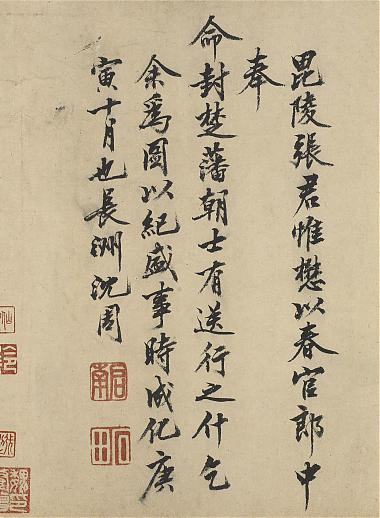 毘陵張君惟懋以春官郎中
奉
命封楚藩朝士有送行之什乞
余爲圖以紀盛事時成化庚
寅十月也長洲沈周
啓南
石田